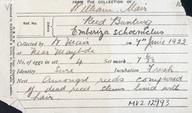 FROM THE COLLECTION OF
William Mair
Reed Bunting
Emberiza schoeniclus
Collected by W Mair on 7th June 1922
at Near Maybole
No. of eggs in set 4 Set mark 7 8/2
Identity Sure Incubation Fresh
Nest Amongst reeds composed
of dead reed stems lined with
hair
MV2.12993